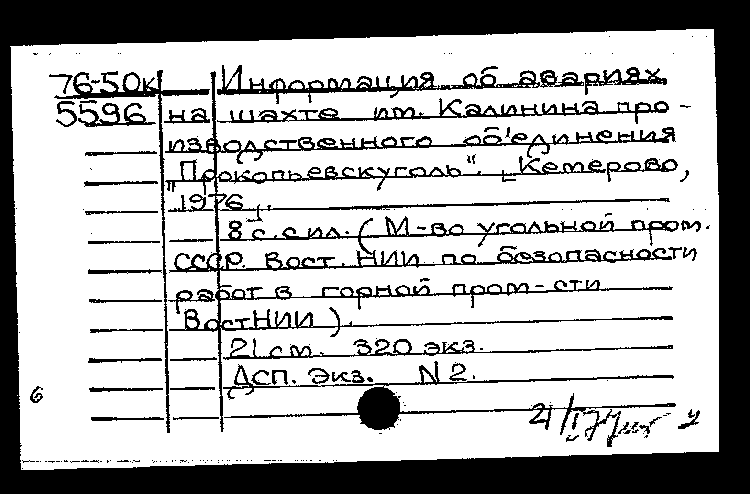 76-50к Информация об авариях
5596 на шахте им. Калинина про-
изводственного об'единения
"Прокопьевскуголь". [Кемерово,
1976].
8 с. с ил. (М-во угольной пром.
СССР. Вост. НИИ по безопасности
работ в горной пром-сти
ВостНИИ).
21 см. 320 экз.
ДСП. Экз. N 2.
6